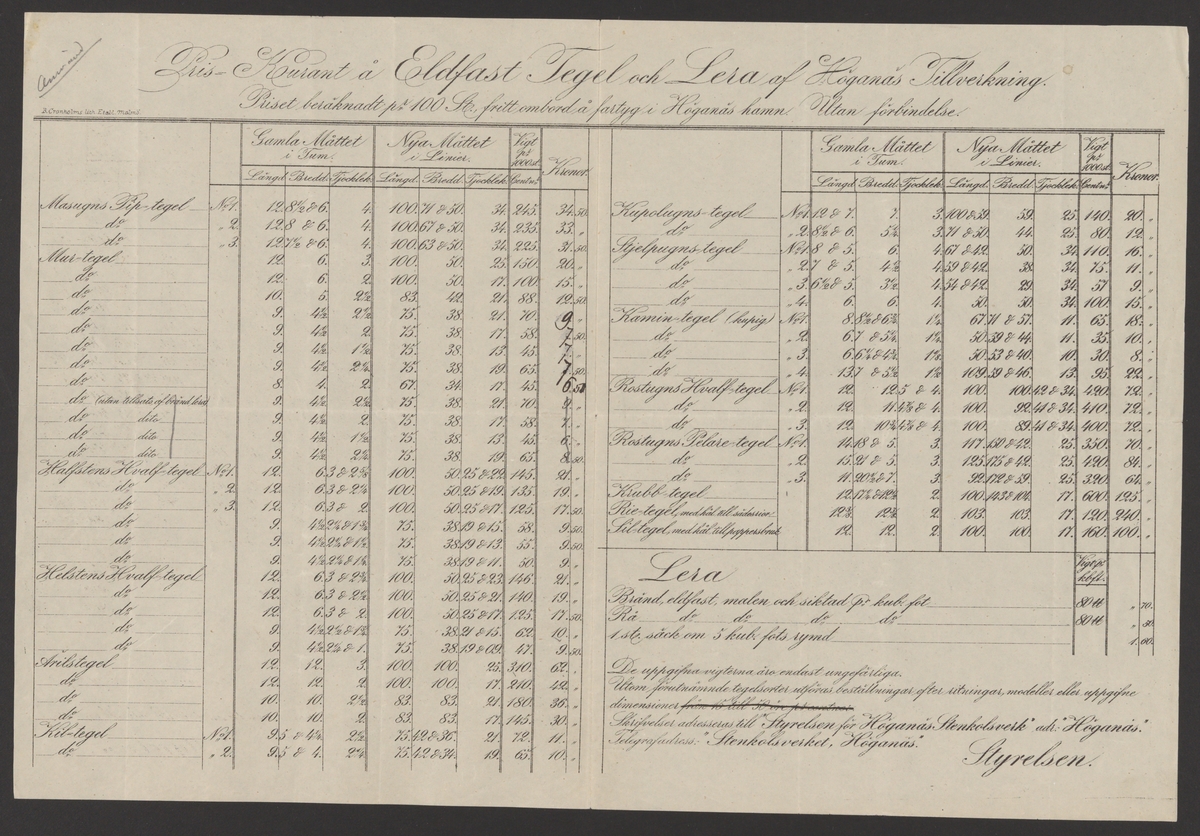 Pris-Kurant å Eldfast Tegel och Lera af Höganäs Tillverkning.
B. Cronholms lith. Etabl. Malmö.
Priset beräknadt pr 100 St. fritt ombord å fartyg i Höganäs hamn. Utan förbindelse.
Gamla Måttet i Tum. Nya Måttet i Linier. Vigt pr 1000 st. Kronor.
Längd. Bredd. Tjocklek. Längd. Bredd. Tjocklek. Centnr.
Masugns Pip-tegel No 1. 12. 8½ & 6. 4. 100. 71 & 50. 34. 245. 34. 50.
do " 2. 12. 8 & 6. 4. 100. 67 & 50. 34. 235. 33. "
do " 3. 12. 7½ & 6. 4. 100. 63 & 50. 34. 225. 31. 50.
Mur-tegel 12. 6. 3. 100. 50. 25. 150. 20. "
do 12. 6. 2. 100. 50. 17. 100. 15. "
do 10. 5. 2½. 83. 42. 21. 88. 12. 50.
do 9. 4½. 2½. 75. 38. 21. 70. 9. "
do 9. 4½. 2. 75. 38. 17. 58. 7. 50.
do 9. 4½. 1½. 75. 38. 13. 45. 7.
do 9. 4½. 2¼. 75. 38. 19. 65. 7. 50.
do 8. 4. 2. 67. 34. 17. 45. 6. 50
do (utan tillsats af bränd lera) 9. 4½. 2½. 75. 38. 21. 70. 9. "
do dito 9. 4½. 2. 75. 38. 17. 58. 7. "
do dito 9. 4½. 1½. 75. 38. 13. 45. 6. "
do dito 9. 4½. 2¼. 75. 38. 19. 65. 8. 50.
Halfstens Hvalf-tegel No 1. 12. 6. 3 & 2¾. 100. 50. 25 & 22. 145. 21. "
do " 2. 12. 6. 3 & 2¼. 100. 50. 25 & 19. 135. 19. "
do " 3. 12. 6. 3 & 2. 100. 50. 25 & 17. 125. 17. 50.
do 9. 4½. 75. 38. 19 & 15. 58. 9. 50.
do 9. 4½. 75. 38. 19 & 13. 55. 9. 50.
do 9. 4½. 75. 38. 19 & 11. 50. 9. "
Helstens Hvalf-tegel 12. 6. 3 & 2¾. 100. 50. 25 & 23. 146. 21. "
do 12. 6. 3 & 2½. 100. 50. 25 & 21. 140. 19. "
do 12. 6. 3 & 2. 100. 50. 25 & 17. 125. 17. 50.
do 9. 4½. 75. 38. 21 & 15. 62. 10. "
do 9. 4½. 2¼ & 1. 75. 38. 19 & 09. 47. 9. 50.
Ärilstegel 12. 12. 3. 100. 100. 25. 310. 62. "
do 12. 12. 2. 100. 100. 17. 210. 42. "
do 10. 10. 2½. 83. 83. 21. 180. 36. "
do 10. 10. 2. 83. 83. 17. 145. 30. "
Kil-tegel No 1. 9. 5 & 4¼. 2½. 75. 42 & 36. 21. 72. 11. "
do " 2. 9. 5 & 4. 2¼. 75. 42 & 34. 19. 65. 10. "
Gamla Måttet i Tum. Nya Måttet i Linier. Vigt pr 1000 st. Kronor.
Längd. Bredd. Tjocklek. Längd. Bredd. Tjocklek. Centnr.
Kupolugns-tegel No 1. 12 & 7. 7. 3. 100 & 59. 59. 25. 140. 20. "
do " 2. 8½ & 6. 5¼. 3. 71 & 50. 44. 25. 80. 12. "
Stjelpugns-tegel No 1. 8 & 5. 6. 4. 67 & 42. 50. 34. 110. 16. "
do " 2. 7 & 5. 4½. 4. 59 & 42. 38. 34. 75. 11. "
do " 3. 6½ & 5. 3½. 4. 54 & 42. 29. 34. 57. 9. "
do " 4. 6. 6. 4. 50. 50. 34. 100. 15. "
Kamin-tegel (kupig) No 1. 8. 8½ & 6¾. 1¼. 67. 71 & 57. 11. 65. 18. "
do " 2. 6. 7 & 5¼. 1¼. 50. 59 & 44. 11. 35. 10. "
do " 3. 6. 50. 53 & 40. 10. 30. 8. "
do " 4. 13. 7 & 5½. 1½. 109. 59 & 46. 13. 95. 22. "
Rostugns Hvalf-tegel No 1. 12. 12. 5 & 4. 100. 100. 42 & 34. 420. 72. "
do " 2. 12. 11. 100. 92. 41 & 34. 410. 72. "
do " 3. 12. 100. 89. 41 & 34. 400. 72. "
Rostugns Pelare-tegel No 1. 14. 18 & 5. 3. 117. 150 & 42. 25. 350. 70. "
do " 2. 15. 21 & 5. 3. 125. 175 & 42. 25. 420. 84. "
do " 3. 11. 20½ & 7. 3. 92. 172 & 59. 25. 320. 64. "
Krubb-tegel 12. 17¼ & 12½. 2. 100. 143 & 104. 17. 600. 125. "
Rie-tegel, med hål till sädesrior 12⅜. 12⅜. 2. 103. 103. 17. 120. 240. "
Sil-tegel, med hål till pappersbruk 12. 12. 2. 100. 100. 17. 160. 100. "
Lera
Vigt pr kbft.
Bränd, eldfast, malen och siktad pr kub. fot 80 ℔ " 70.
Rå do do do 80 ℔ " 50.
1 st. säck om 5 kub. fots rymd 1. 60.
De uppgifna vigterna äro endast ungefärliga.
Utom förutnämnde tegelsorter utföras beställningar efter ritningar, modeller eller uppgifne
dimensioner
Skrifvelser adresseras till "Styrelsen för Höganäs Stenkolsverk" adr: "Höganäs."
Telegrafadress: "Stenkolsverket, Höganäs."
Styrelsen.